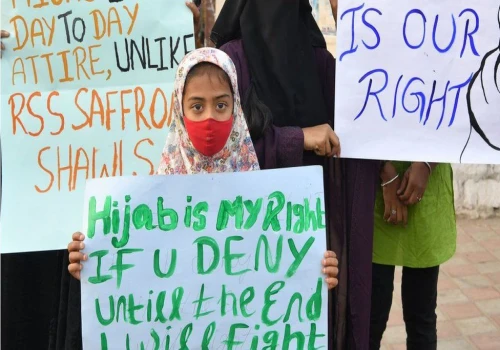 DAY TO DAY
ATTIRE, UNLIKE
RSS SAFFRON
SHAWLS
IS OUR
RIGHT
Hijab is MY Right
IF U DENY
untill the End
I will Fight